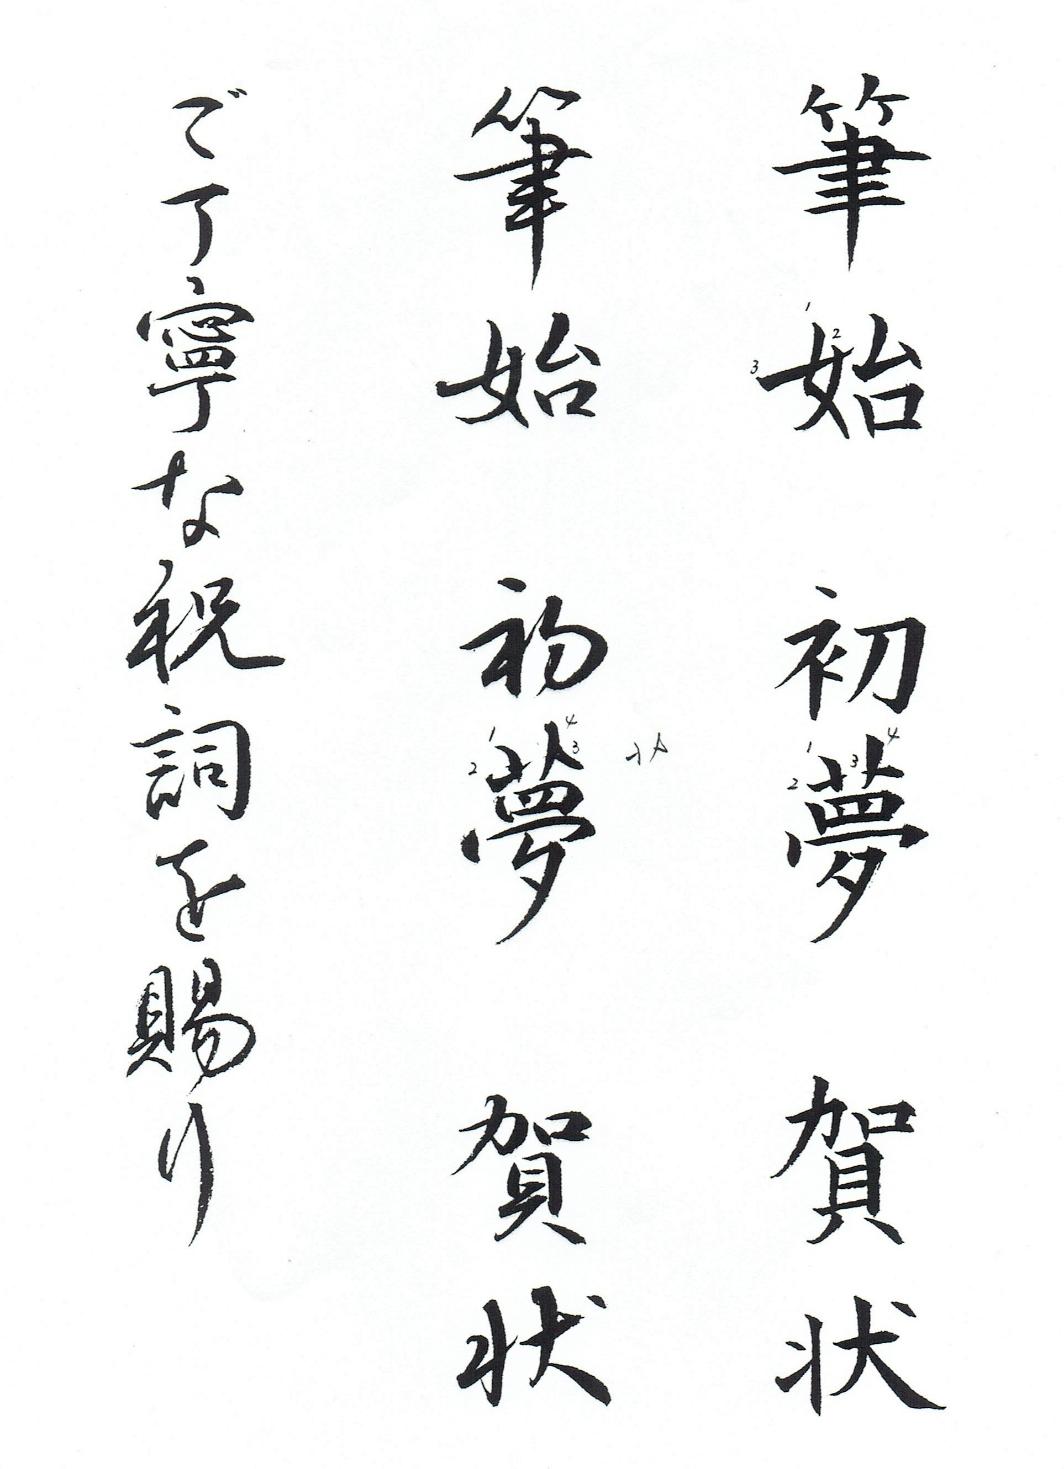 筆始　初夢　賀状
筆始　初夢　賀状
ご丁寧な祝詞を賜り